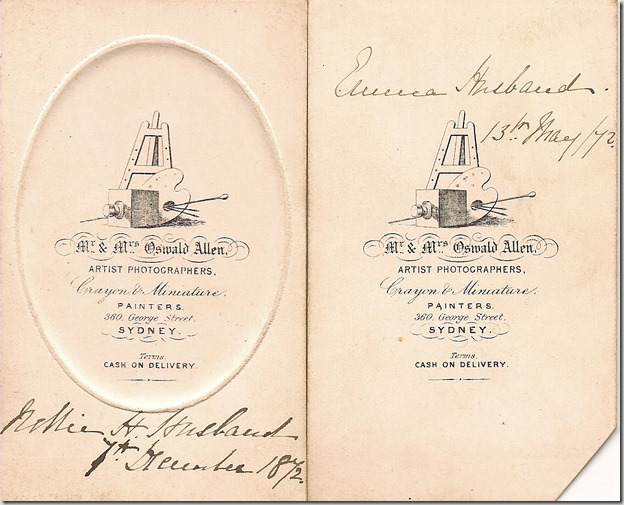 Mr & Mrs Oswald Allen,
ARTIST PHOTOGRAPHERS,
Crayon & Miniature.
PAINTERS.
360, George Street,
SYDNEY.
Terms,
CASH ON DELIVERY.
Nellie H. Husband
7th December 1872.
Emma Husband.
13th May /72.
Mr & Mrs Oswald Allen,
ARTIST PHOTOGRAPHERS,
Crayon & Miniature.
PAINTERS.
360, George Street,
SYDNEY.
Terms,
CASH ON DELIVERY.